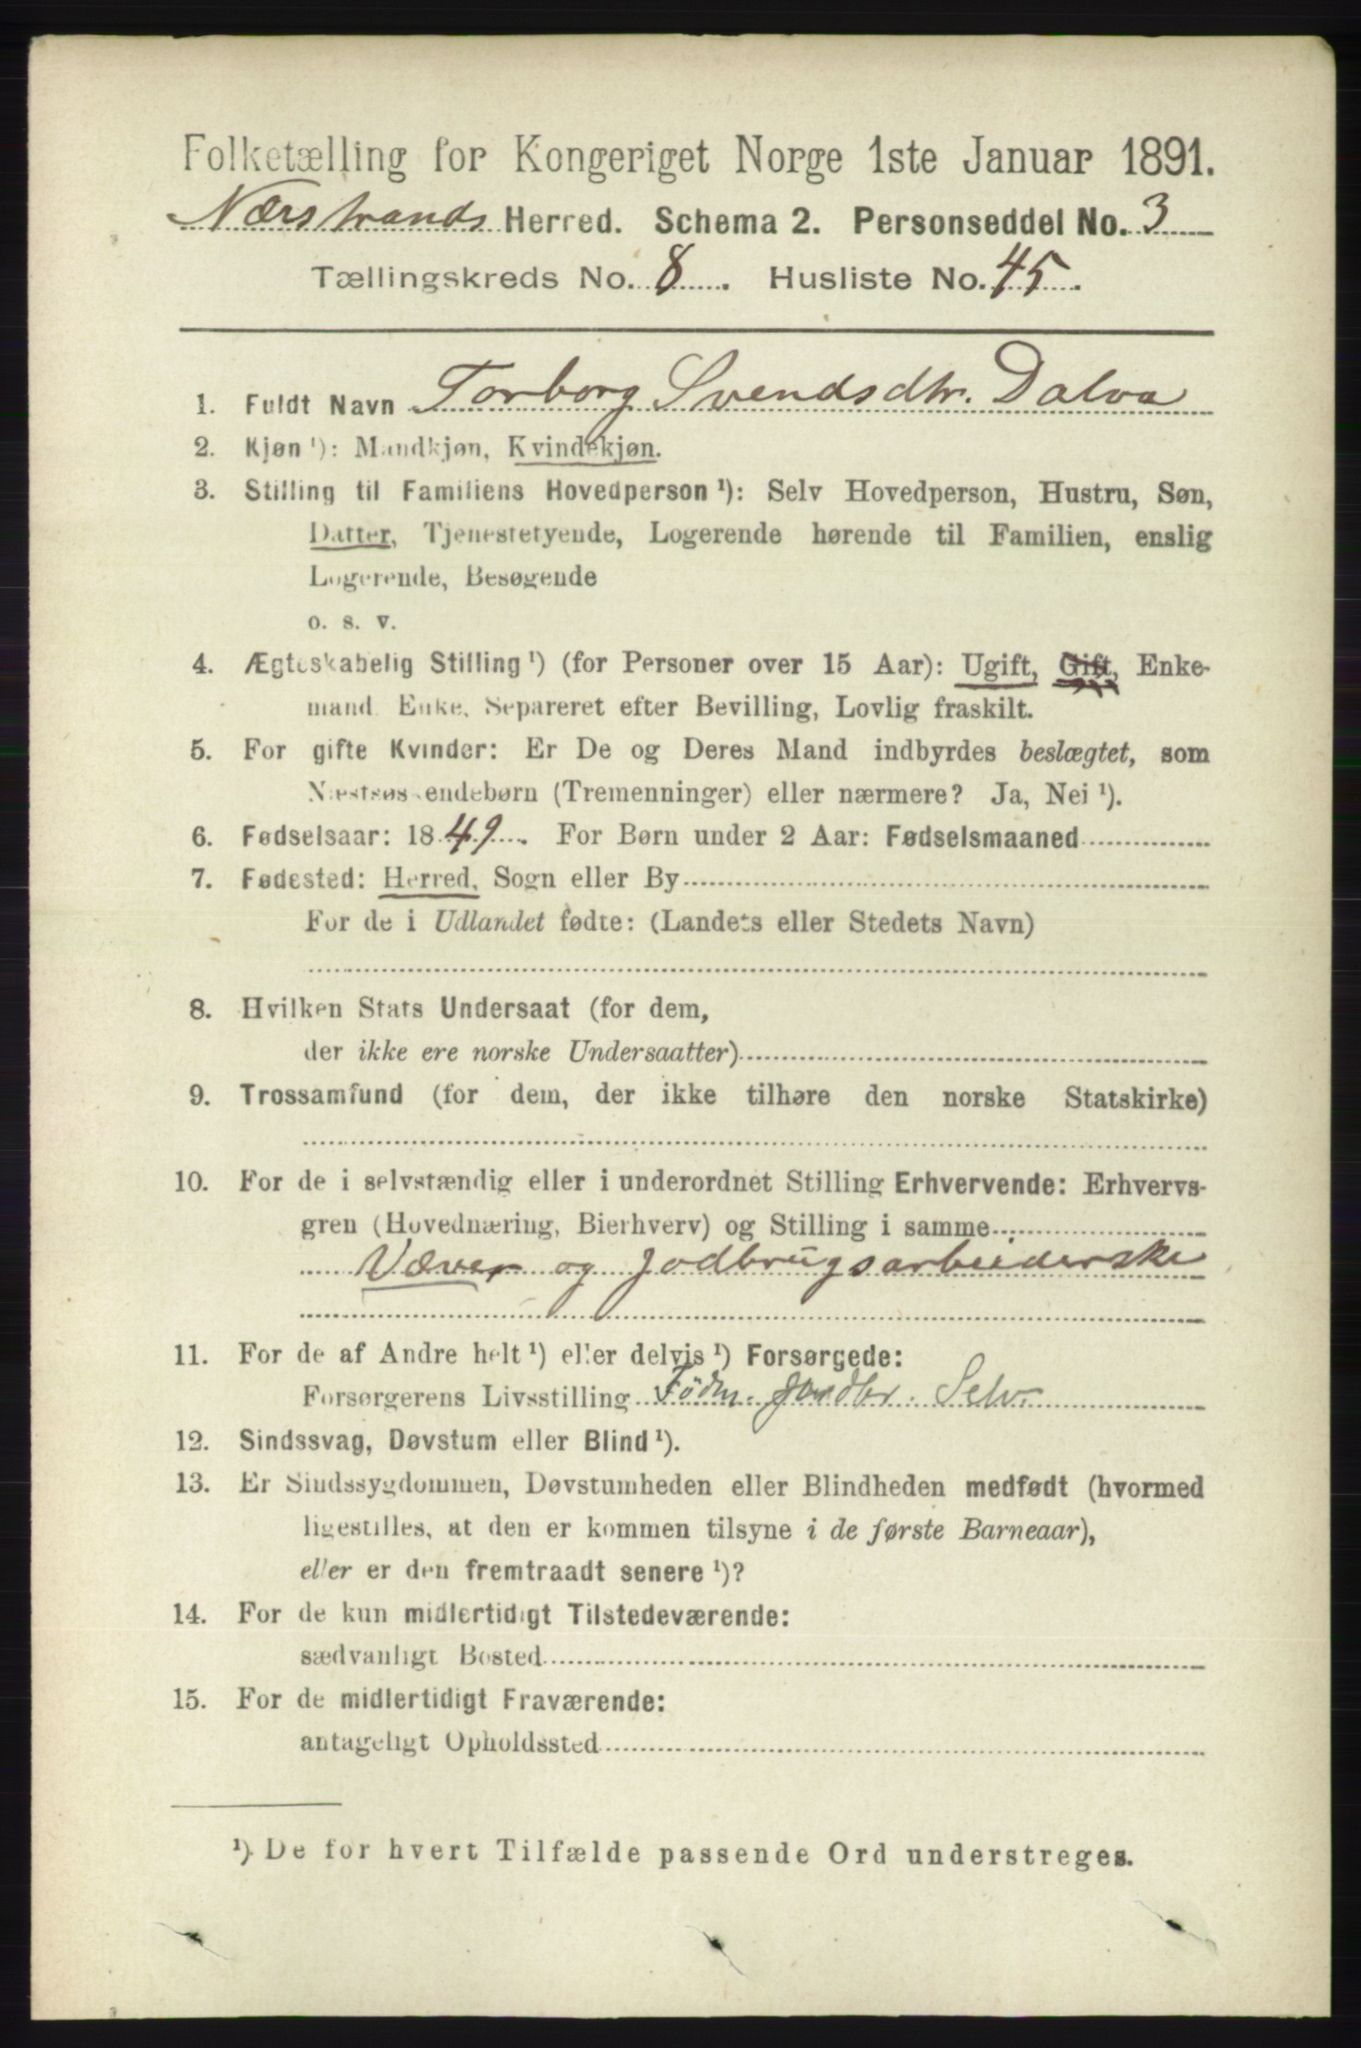 Folketælling for Kongeriget Norge 1ste Januar 1891.
Nærstrands Herred. Schema 2. Personseddel No. 3
Tællingskreds No. 8. Husliste No. 45.
1. Fuldt Navn Torborg Svendsdtr. Dalva
2. Kjøn ¹): Mandkjøn, Kvindekjøn.
3. Stilling til Familiens Hovedperson ¹): Selv Hovedperson, Hustru, Søn,
Datter, Tjenestetyende, Logerende hørende til Familien, enslig
Logerende, Besøgende
o. s. v.
4. Ægteskabelig Stilling ¹) (for Personer over 15 Aar): Ugift, Gift, Enke-
mand, Enke, Separeret efter Bevilling, Lovlig fraskilt.
5. For gifte Kvinder: Er De og Deres Mand indbyrdes beslægtet, som
Næstsøskendebørn (Tremenninger) eller nærmere? Ja, Nei ¹).
6. Fødselsaar: 1849. For Børn under 2 Aar: Fødselsmaaned
7. Fødested: Herred, Sogn eller By
For de i Udlandet fødte: (Landets eller Stedets Navn)
8. Hvilken Stats Undersaat (for dem,
der ikke ere norske Undersaatter)
9. Trossamfund (for dem, der ikke tilhøre den norske Statskirke)
10. For de i selvstændig eller i underordnet Stilling Erhvervende: Erhvervs-
gren (Hovednæring, Bierhverv) og Stilling i samme
Væver og Jodbrugsarbeiderske
11. For de af Andre helt ¹) eller delvis ¹) Forsørgede:
Forsørgerens Livsstilling Selv.
12. Sindssvag, Døvstum eller Blind ¹).
13. Er Sindssygdommen, Døvstumheden eller Blindheden medfødt (hvormed
ligestilles, at den er kommen tilsyne i de første Barneaar),
eller er den fremtraadt senere ¹)?
14. For de kun midlertidigt Tilstedeværende:
sædvanligt Bosted
15. For de midlertidigt Fraværende:
antageligt Opholdssted
¹) De for hvert Tilfælde passende Ord understreges.